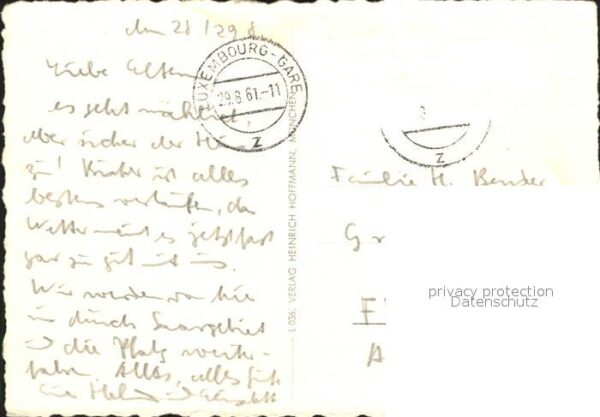 den 28/29 8.
Liebe Eltern
es geht
aber sicher der
zu! ist alles
bestens verlaufen, das
Wetter meint es jetzt fast
gar zu gut mit uns.
Wir werden von hier
durch Saargebiet
die Pfalz weiter-
fahren. Alles, alles Gute
Eure
LUXEMBOURG-GARE
29.8.61.-11
Z
L 036, VERLAG HEINRICH HOFFMANN, MÜNCHEN
Z
Familie H. Bender
G
privacy protection
Datenschutz